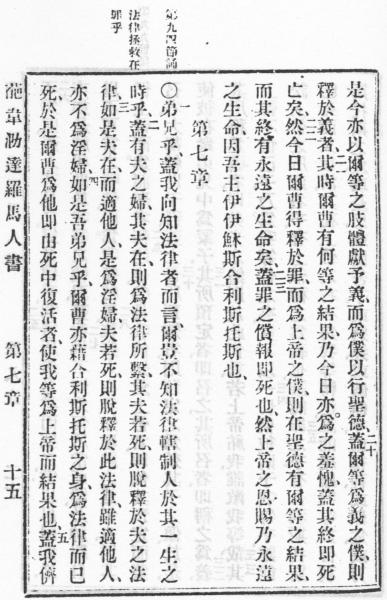 第九四節誦
法律拯救在
罪乎
是今亦以爾等之肢體獻予義而爲僕以行聖德蓋爾等爲義之僕則
二十
釋於義者其時爾曹有何等之結果乃今日亦爲之羞愧蓋其終即死
二一
亡矣然今日爾曹得釋於罪而爲上帝之僕則在聖德有爾等之結果
二二
而其終有永遠之生命矣蓋罪之償報即死也然上帝之恩賜乃永遠
二三
之生命因吾主伊伊穌斯合利斯托斯也
第七章
一
〇弟兄乎蓋我向知法律者而言爾豈不知法律轄制人於其一生之
時乎蓋有夫之婦其夫在則爲法律所繫其夫若死則脫釋於夫之法
二
律如是夫在而適他人是爲淫婦夫若死則脫釋於此法律雖適他人
三
亦不爲淫婦如是吾弟兄乎爾曹亦藉合利斯托斯之身爲法律而已
四
死於是爾曹爲他即由死中復活者使我等爲上帝而結果也蓋我儕
五
葩韋泐達羅馬人書
第七章
十五